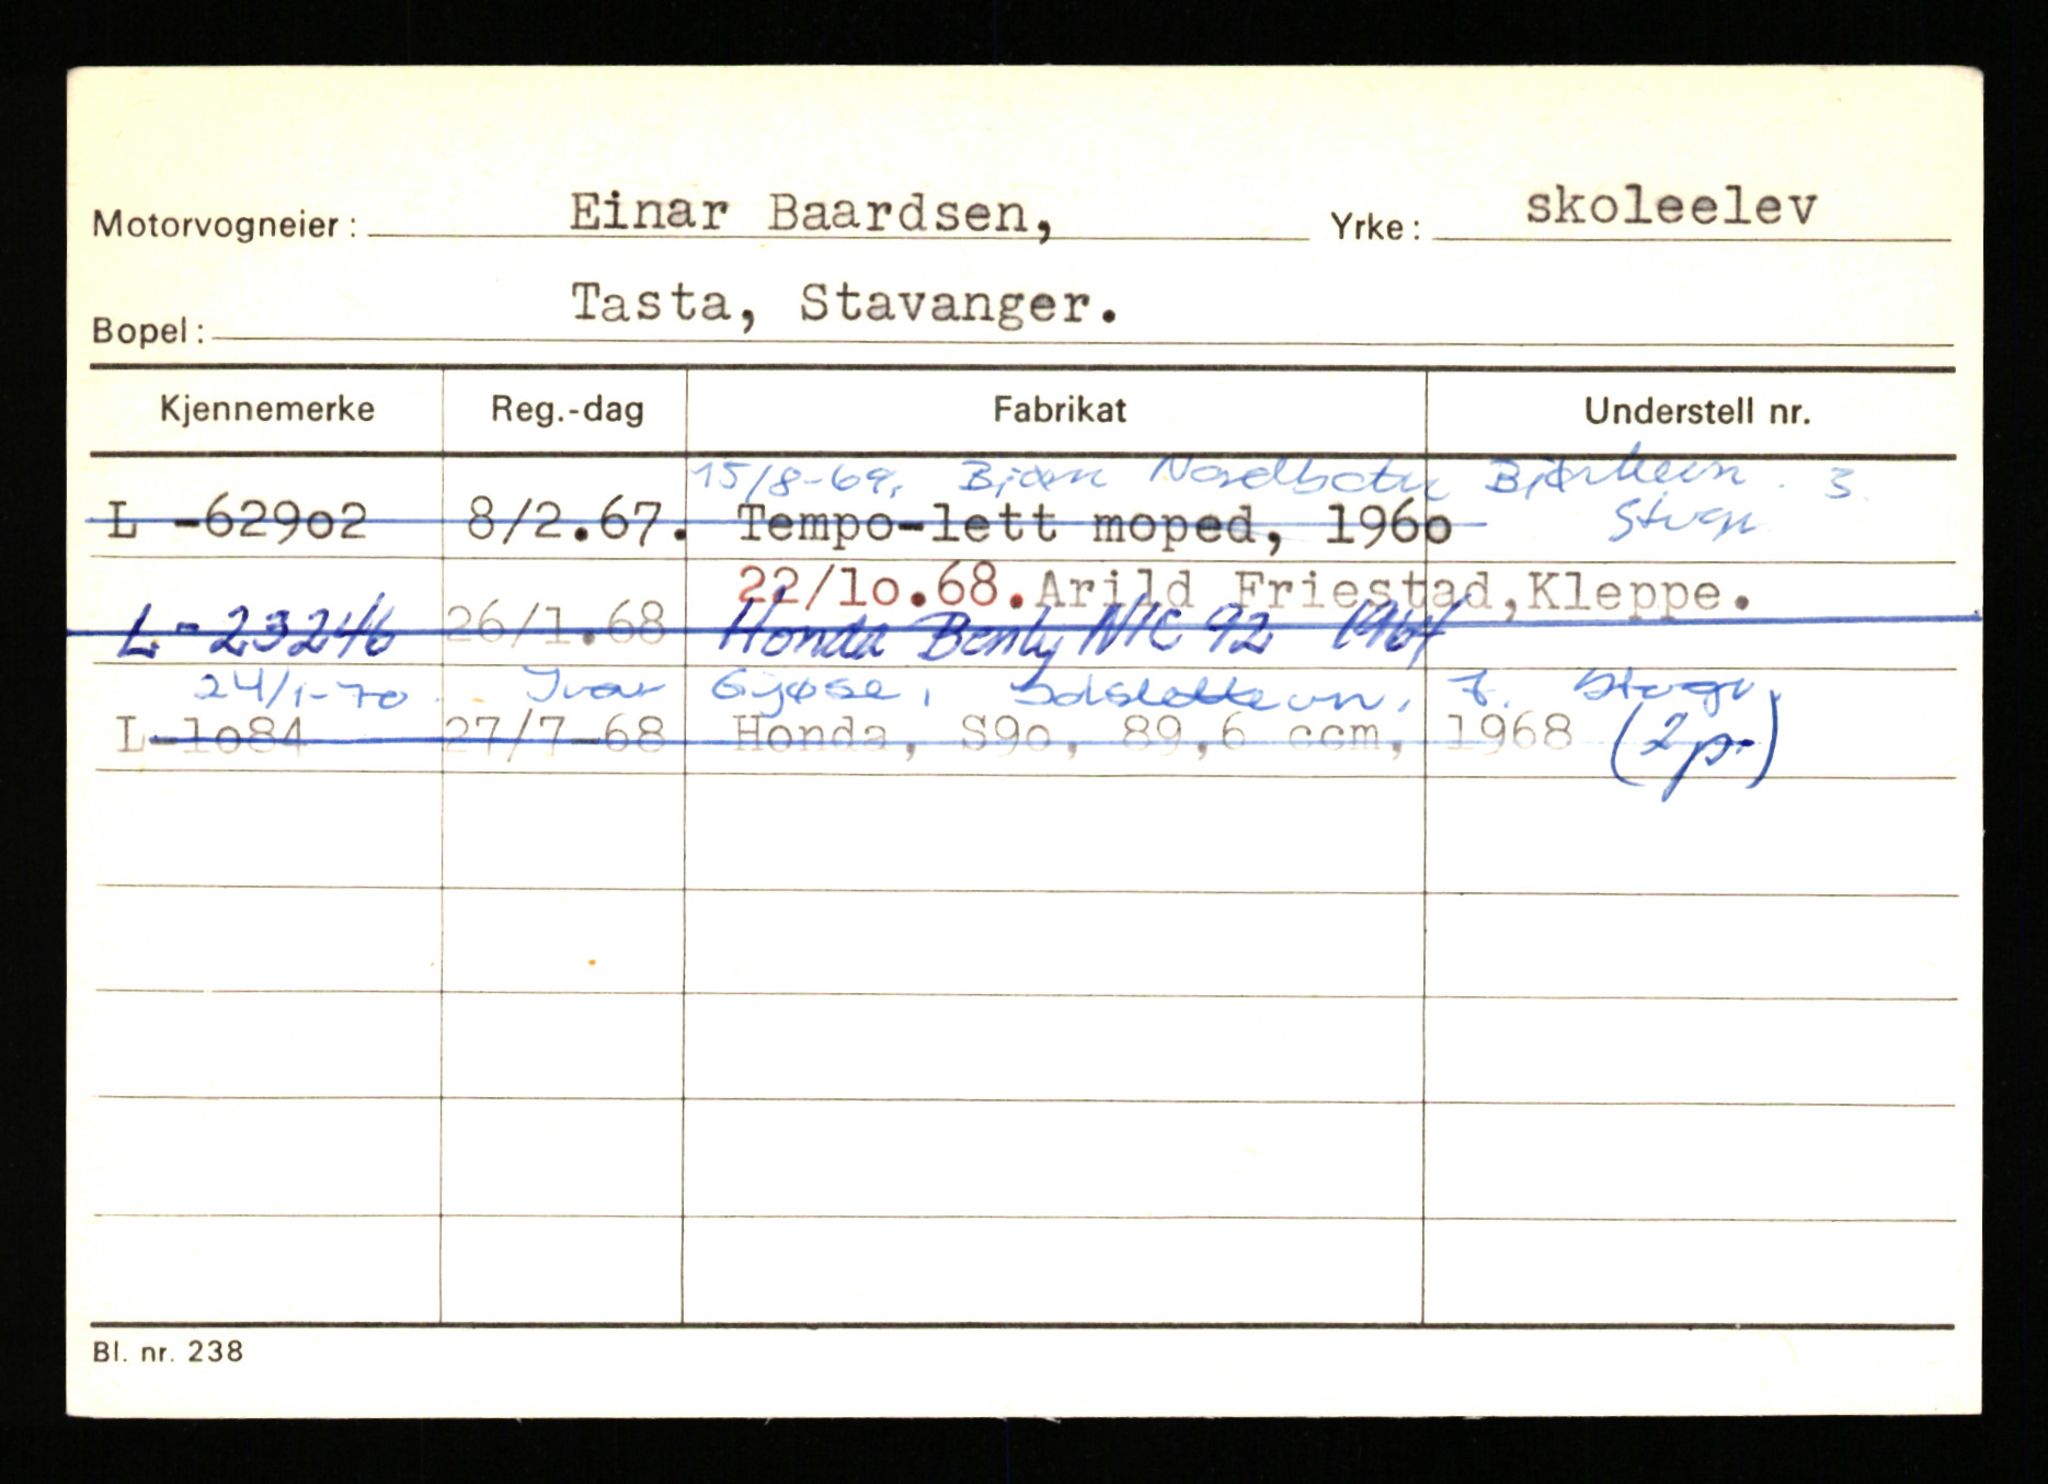 Motorvogneier: Einar Baardsen, Yrke: skoleelev
Bopel: Tasta, Stavanger.
Kjennemerke Reg.-dag Fabrikat Understell nr.
15/8-69, Bjørn Nordbotn 3
L -62902 8/2.67. Tempo-lett moped, 1960 Stvgr
22/10.68. Arild Friestad, Kleppe.
L-23246 26/1.68 Honda Benly N/C 92 1964
24/1-70. Ivar Gjøse, 7. Stvgr.
L-1o84 27/7-68 Honda, S9o, 89,6 ccm, 1968 (2 p.)
Bl. nr. 238